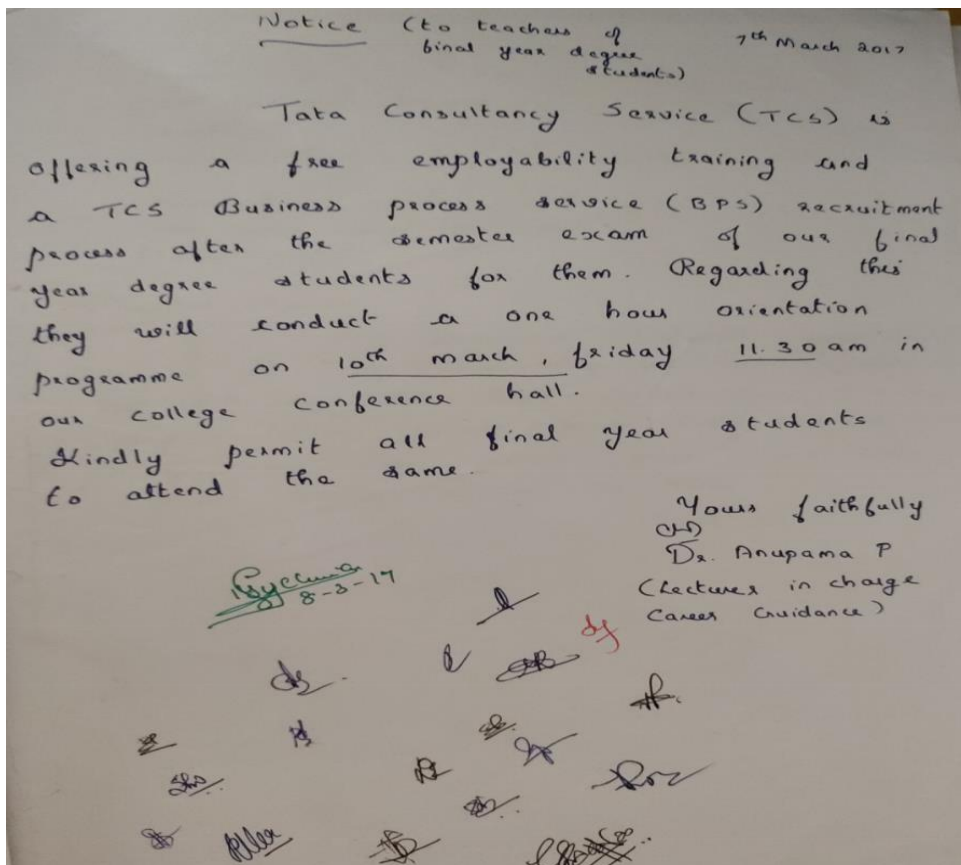 Notice (to teachers of
final year degree
students)
7th March 2017
Tata Consultancy Service (TCS) is
offering a free employability training and
a TCS Business process service (BPS) recruitment
process after the semester exam of our final
year degree students for them. Regarding this
they will conduct a one hour orientation
programme on 10th march, friday 11.30 am in
our college conference hall.
Kindly permit all final year students
to attend the same.
Yours faithfully
Dr. Anupama P
(Lecturer in charge
Career Guidance)
8-3-17